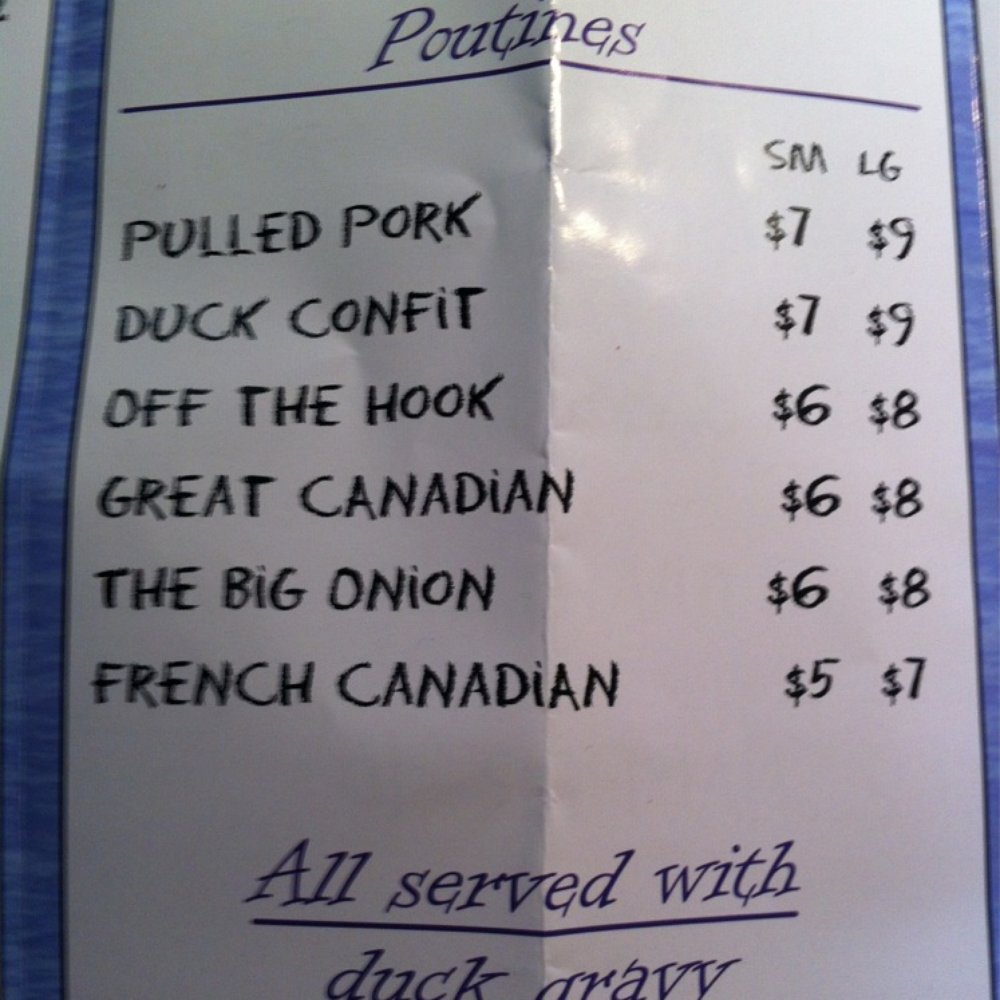 Poutines
SM LG
PULLED PORK $7 $9
DUCK CONFIT $7 $9
OFF THE HOOK $6 $8
GREAT CANADIAN $6 $8
THE BIG ONION $6 $8
FRENCH CANADIAN $5 $7
All served with
duck gravy